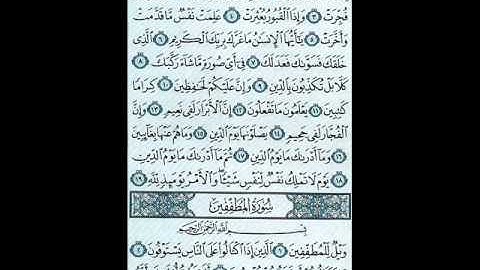 فُجِّرَتْ ٣ وَإِذَا ٱلْقُبُورُ بُعْثِرَتْ ٤ عَلِمَتْ نَفْسٌ مَّا قَدَّمَتْ
وَأَخَّرَتْ ٥ يَٰٓأَيُّهَا ٱلْإِنسَٰنُ مَا غَرَّكَ بِرَبِّكَ ٱلْكَرِيمِ ٦ ٱلَّذِى
خَلَقَكَ فَسَوَّىٰكَ فَعَدَلَكَ ٧ فِىٓ أَىِّ صُورَةٍ مَّا شَآءَ رَكَّبَكَ ٨
كَلَّا بَلْ تُكَذِّبُونَ بِٱلدِّينِ ٩ وَإِنَّ عَلَيْكُمْ لَحَٰفِظِينَ ١٠ كِرَامًا
كَٰتِبِينَ ١١ يَعْلَمُونَ مَا تَفْعَلُونَ ١٢ إِنَّ ٱلْأَبْرَارَ لَفِى نَعِيمٍ ١٣ وَإِنَّ
ٱلْفُجَّارَ لَفِى جَحِيمٍ ١٤ يَصْلَوْنَهَا يَوْمَ ٱلدِّينِ ١٥ وَمَا هُمْ عَنْهَا بِغَآئِبِينَ
١٦ وَمَآ أَدْرَىٰكَ مَا يَوْمُ ٱلدِّينِ ١٧ ثُمَّ مَآ أَدْرَىٰكَ مَا يَوْمُ ٱلدِّينِ
١٨ يَوْمَ لَا تَمْلِكُ نَفْسٌ لِّنَفْسٍ شَيْـًٔا وَٱلْأَمْرُ يَوْمَئِذٍ لِّلَّهِ ١٩
سُورَةُ ٱلْمُطَفِّفِينَ
بِسْمِ ٱللَّهِ ٱلرَّحْمَٰنِ ٱلرَّحِيمِ
وَيْلٌ لِّلْمُطَفِّفِينَ ١ ٱلَّذِينَ إِذَا ٱكْتَالُوا۟ عَلَى ٱلنَّاسِ يَسْتَوْفُونَ ٢